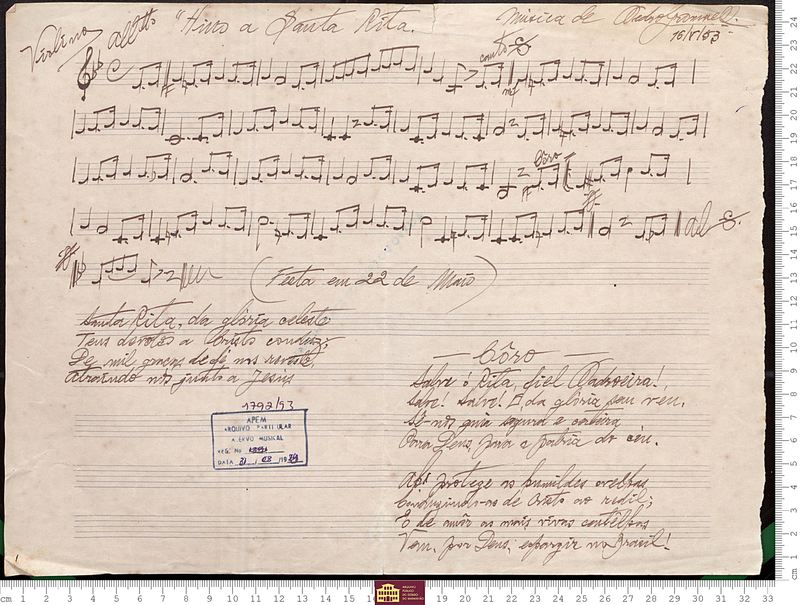 Violino
"Hino a Santa Rita.
Musica de
16/5/53
canto
mf
Côro
ff
al
ff
(Festa em 22 de Maio)
Santa Rita, da glória celeste
Teus devotos a Cristo conduz;
De mil graças de fé nos reveste,
Atraindo nos junto a Jesus
— Côro —
Salve ó Rita, fiel Padroeira!,
Salve! Salve! da glória seu véu.
Sê-nos guia segura e certeira
Para Deus, para a pátria do céu.
protege os humildes ovelhas
Conduzindo-os de Cristo ao redil;
E de amôr as mais vivas centelhas
Vem, por Deus, espargir no Brasil!
1792/93
APEM
ARQUIVO PARTICULAR
ACERVO MUSICAL
REG. No
DATA 31
cm 1 2 3 4 5 6 7 8 9 10 11 12 13 14 15 16 19 20 21 22 23 24 25 26 27 28 29 30 31 32 33
cm 1 2 3 4 5 6 7 8 9 10 11 12 13 14 15 16 17 18 19 20 21 22 23 24
ARQUIVO
PÚBLICO
DO ESTADO
DO MARANHÃO